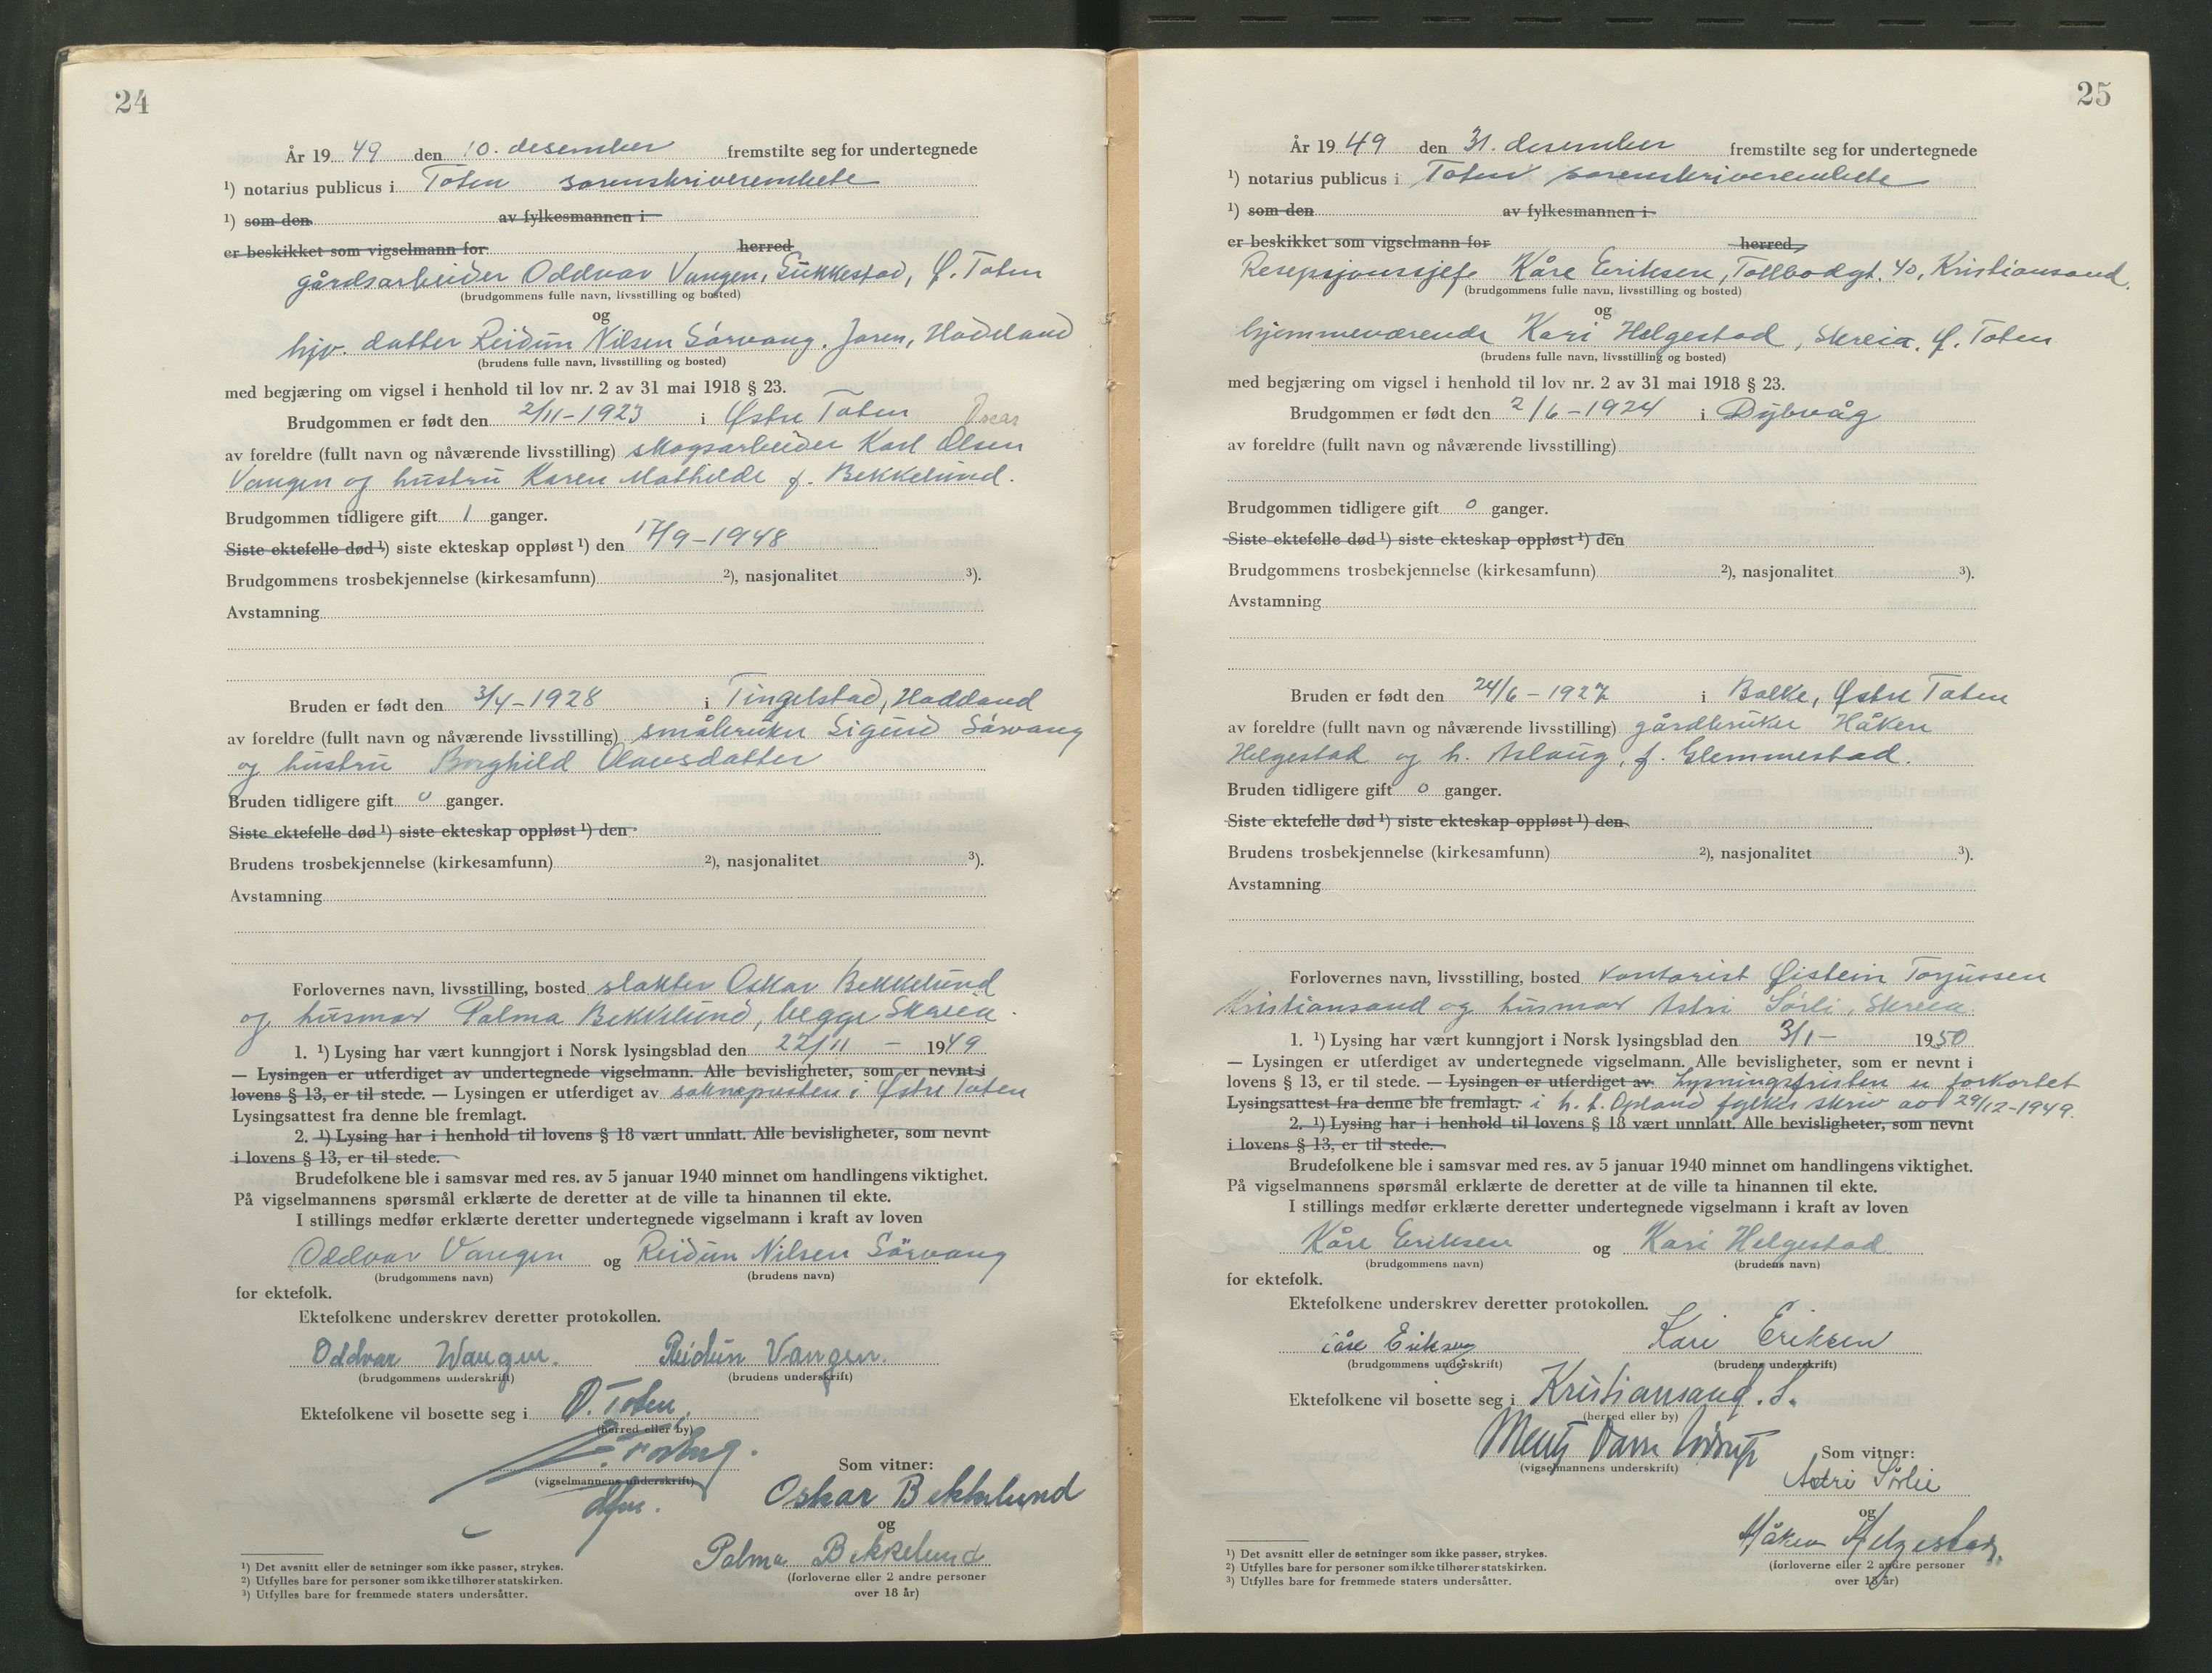 24
År 19 49 den 10. desember fremstilte seg for undertegnede
¹) notarius publicus i Toten sorenskriverembete
¹) som den av fylkesmannen i
er beskikket som vigselmann for herred
gårdsarbeider Oddvar Vangen, Sukkestad, Ø. Toten
(brudgommens fulle navn, livsstilling og bosted)
og
hjv. datter Reidun Nilsen Sörvang. Jaren, Hadeland
(brudens fulle navn, livsstilling og bosted)
med begjæring om vigsel i henhold til lov nr. 2 av 31 mai 1918 § 23.
Brudgommen er født den 2/11-1923 i Østre Toten Oscar
av foreldre (fullt navn og nåværende livsstilling) skogsarbeider Karl Olsen
Vangen og hustru Karen Mathilde f. Bekkelund.
Brudgommen tidligere gift 1 ganger.
Siste ektefelle død ¹) siste ekteskap oppløst ¹) den 17/9-1948
Brudgommens trosbekjennelse (kirkesamfunn) ²), nasjonalitet ³).
Avstamning
Bruden er født den 3/4-1928 i Tingelstad, Hadeland
av foreldre (fullt navn og nåværende livsstilling) småbruker Sigurd Sörvang
og hustru Borghild Olausdatter
Bruden tidligere gift 0 ganger.
Siste ektefelle død ¹) siste ekteskap oppløst ¹) den
Brudens trosbekjennelse (kirkesamfunn) ²), nasjonalitet ³).
Avstamning
Forlovernes navn, livsstilling, bosted slakter Oskar Bekkelund
og husmor Palma Bekkelund, begge Skreia.
1. ¹) Lysing har vært kunngjort i Norsk lysingsblad den 22/11 - 1949
— Lysingen er utferdiget av undertegnede vigselmann. Alle bevisligheter, som er nevnt i
lovens § 13, er til stede. — Lysingen er utferdiget av soknepresten i Østre Toten
Lysingsattest fra denne ble fremlagt.
2. ¹) Lysing har i henhold til lovens § 18 vært unnlatt. Alle bevisligheter, som nevnt
i lovens § 13, er til stede.
Brudefolkene ble i samsvar med res. av 5 januar 1940 minnet om handlingens viktighet.
På vigselmannens spørsmål erklærte de deretter at de ville ta hinannen til ekte.
I stillings medfør erklærte deretter undertegnede vigselmann i kraft av loven
Oddvar Vangen og Reidun Nilsen Sörvang
(brudgommens navn) (brudens navn)
for ektefolk.
Ektefolkene underskrev deretter protokollen.
Oddvar Wangen. Reidun Vangen.
(brudgommens underskrift) (brudens underskrift)
Ektefolkene vil bosette seg i Ø. Toten,
(herred eller by)
Som vitner:
(vigselmannens underskrift)
Oskar Bekkelund
og
Palma Bekkelund
(forloverne eller 2 andre personer
over 18 år)
¹) Det avsnitt eller de setninger som ikke passer, strykes.
²) Utfylles bare for personer som ikke tilhører statskirken.
³) Utfylles bare for fremmede staters undersåtter.
25
År 19 49 den 31. desember fremstilte seg for undertegnede
¹) notarius publicus i Toten sorenskriverembete
¹) som den av fylkesmannen i
er beskikket som vigselmann for herred
Resepsjonssjef Kåre Eriksen, Tollbodgt. 40, Kristiansand.
(brudgommens fulle navn, livsstilling og bosted)
og
hjemmeværende Kari Helgestad, Skreia, Ø. Toten
(brudens fulle navn, livsstilling og bosted)
med begjæring om vigsel i henhold til lov nr. 2 av 31 mai 1918 § 23.
Brudgommen er født den 2/6-1924 i Dybvåg
av foreldre (fullt navn og nåværende livsstilling)
Brudgommen tidligere gift 0 ganger.
Siste ektefelle død ¹) siste ekteskap oppløst ¹) den
Brudgommens trosbekjennelse (kirkesamfunn) ²), nasjonalitet ³).
Avstamning
Bruden er født den 24/6-1927 i Balke, Østre Toten
av foreldre (fullt navn og nåværende livsstilling) gårdbruker Håken
Helgestad og h. Aslaug, f. Glemmestad.
Bruden tidligere gift 0 ganger.
Siste ektefelle død ¹) siste ekteskap oppløst ¹) den
Brudens trosbekjennelse (kirkesamfunn) ²), nasjonalitet ³).
Avstamning
Forlovernes navn, livsstilling, bosted kontorist Øistein Torjussen
Kristiansand og husmor Astri Sörli, Skreia
1. ¹) Lysing har vært kunngjort i Norsk lysingsblad den 3/1- 1950
— Lysingen er utferdiget av undertegnede vigselmann. Alle bevisligheter, som er nevnt i
lovens § 13, er til stede. — Lysingen er utferdiget av Lysningsfristen er forkortet
Lysingsattest fra denne ble fremlagt. i h. t. Opland fylkes skriv av 29/12-1949.
2. ¹) Lysing har i henhold til lovens § 18 vært unnlatt. Alle bevisligheter, som nevnt
i lovens § 13, er til stede.
Brudefolkene ble i samsvar med res. av 5 januar 1940 minnet om handlingens viktighet.
På vigselmannens spørsmål erklærte de deretter at de ville ta hinannen til ekte.
I stillings medfør erklærte deretter undertegnede vigselmann i kraft av loven
Kåre Eriksen og Kari Helgestad
(brudgommens navn) (brudens navn)
for ektefolk.
Ektefolkene underskrev deretter protokollen.
Kåre Eriksen Kari Eriksen
(brudgommens underskrift) (brudens underskrift)
Ektefolkene vil bosette seg i Kristiansand. S.
(herred eller by)
Som vitner:
(vigselmannens underskrift)
Astri Sørlie
og
Håken Helgestad,
(forloverne eller 2 andre personer
over 18 år)
¹) Det avsnitt eller de setninger som ikke passer, strykes.
²) Utfylles bare for personer som ikke tilhører statskirken.
³) Utfylles bare for fremmede staters undersåtter.